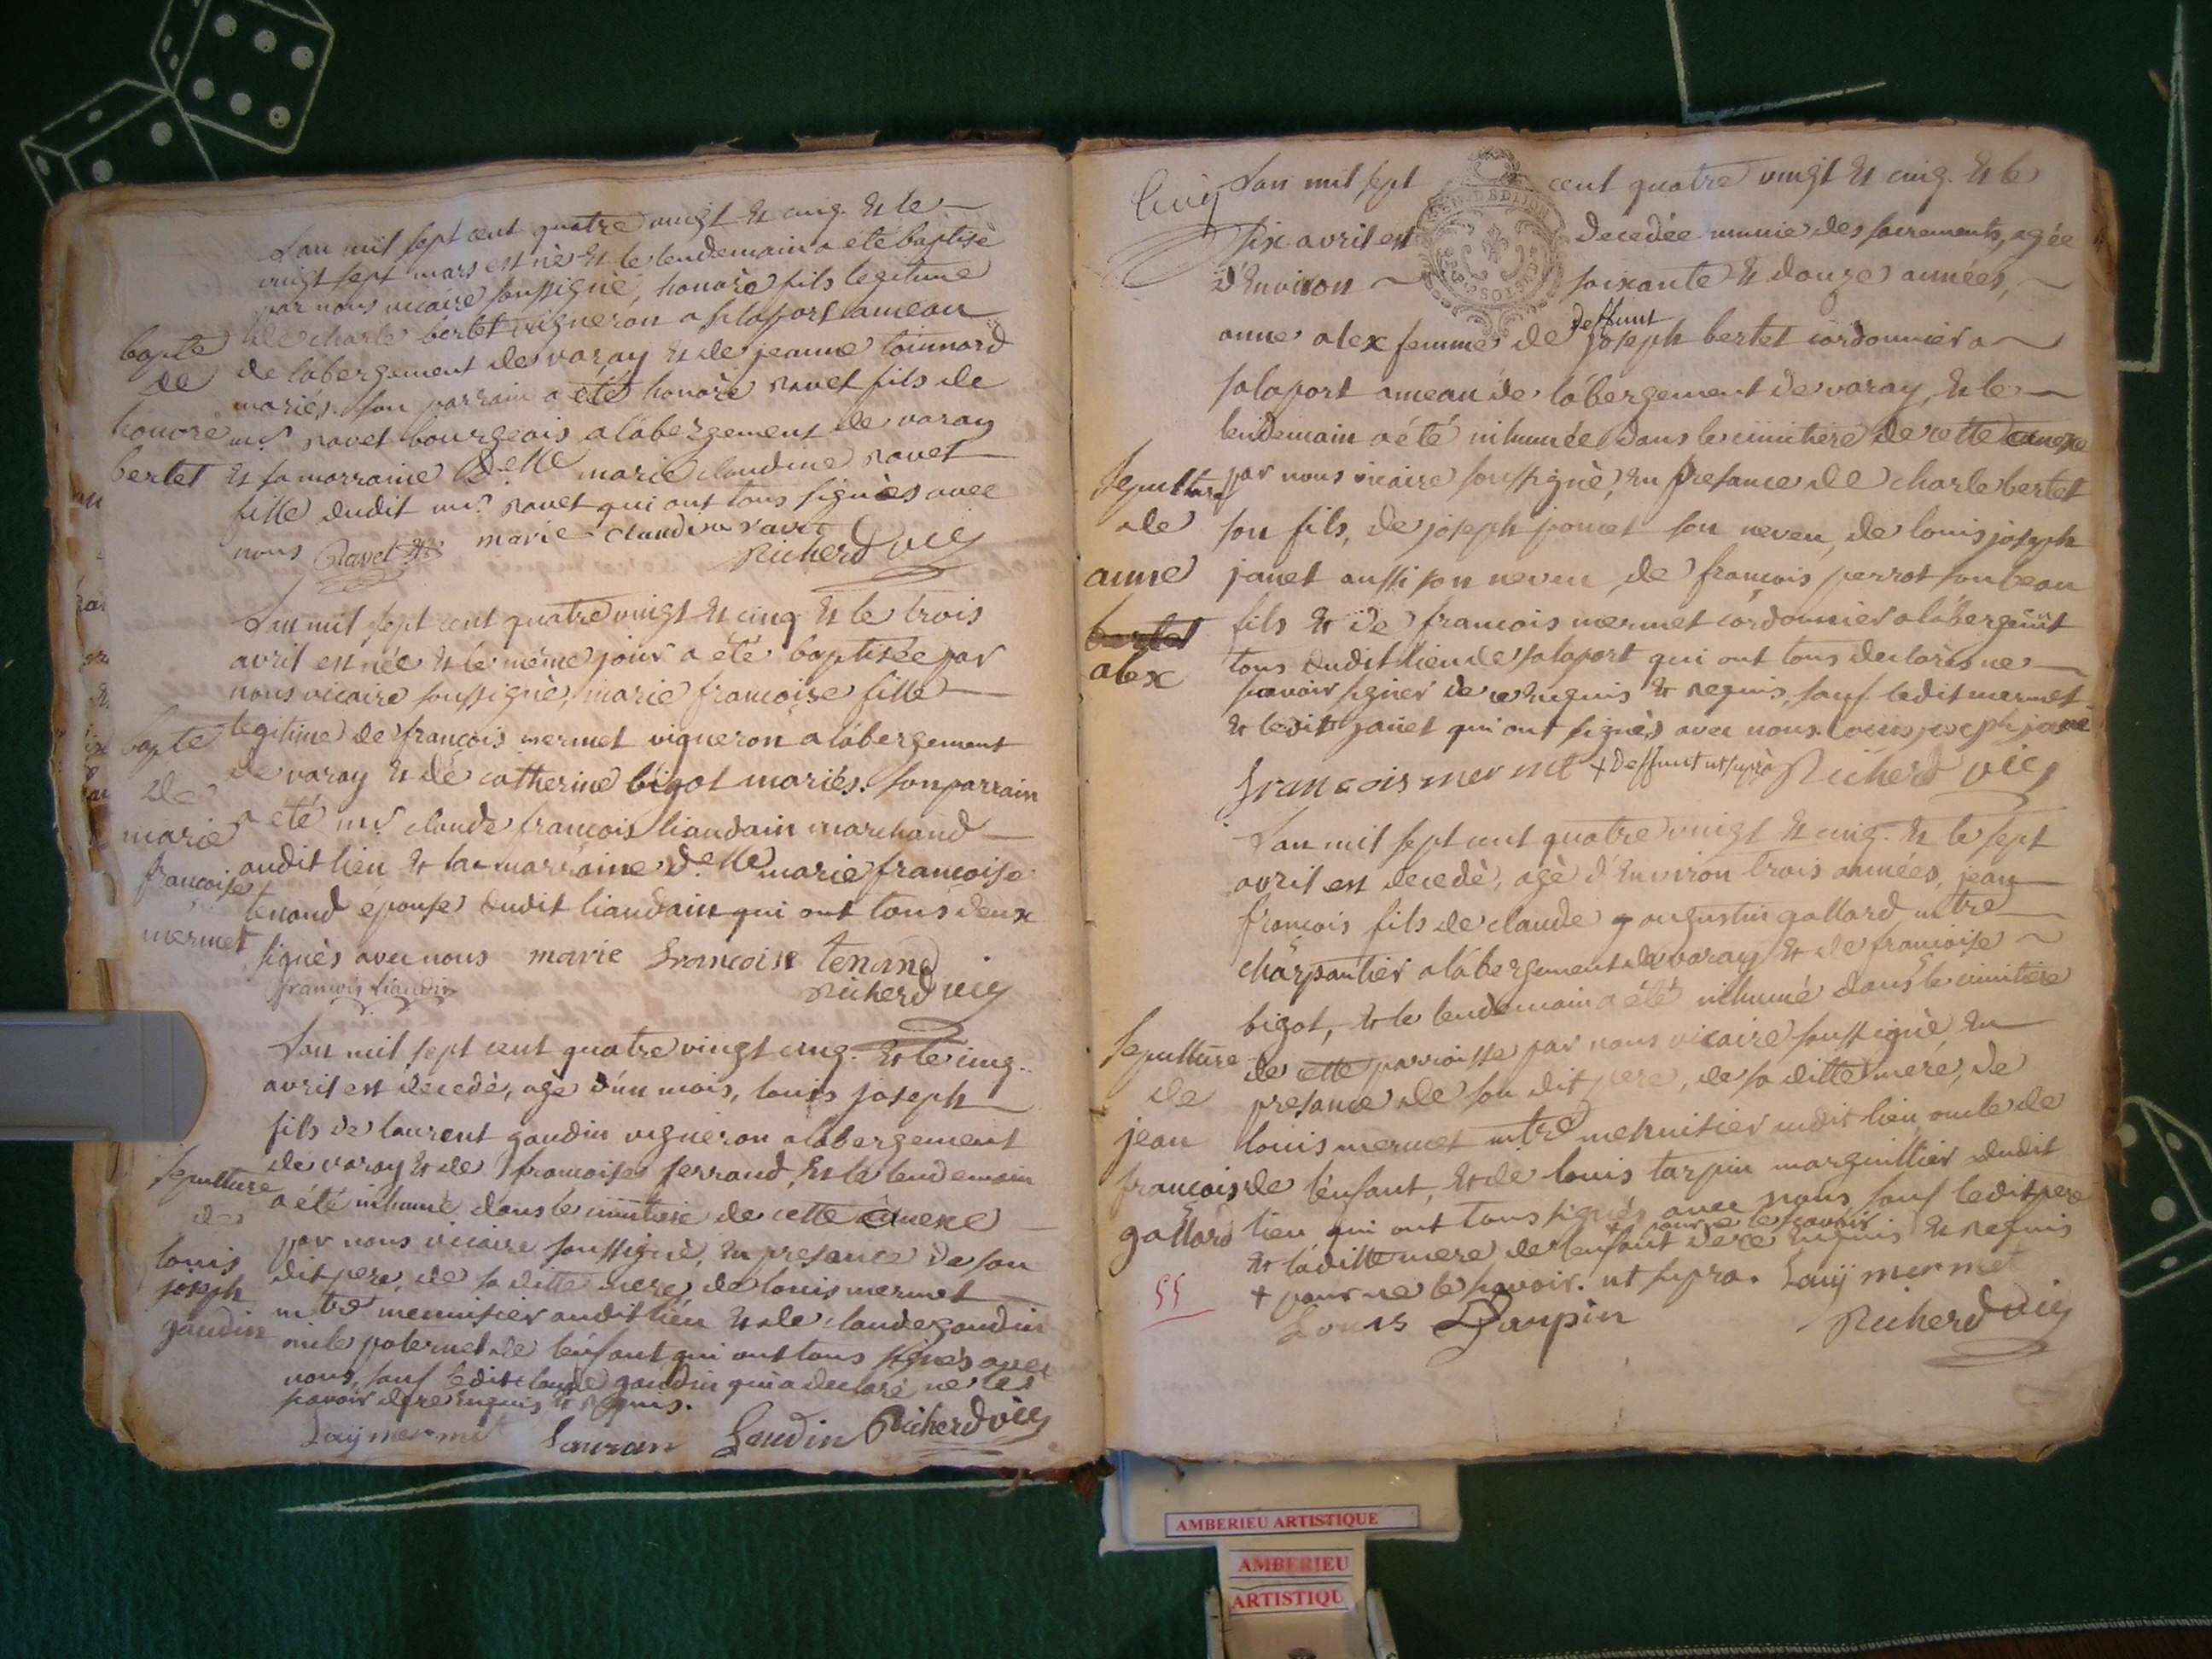 L'an mil sept cent quatre vingt et cinq. et le
vingt sept mars est né et le lendemain a été baptisé
par nous vicaire soussigné, honoré fils legitime
de charle bertet vigneron a salaport ameau
de labergement de varay et de jeanne
mariés. son parrain a été honoré ravet fils de
mr. ravet bourgeois a labergement de varay
et sa marraine d.elle marie claudine ravet
fille dudit mr. ravet qui ont tous signés avec
nous Ravet marie claudine ravet
Richerd vic
bapte
de
honore
bertet
L'an mil sept cent quatre vingt et cinq et le trois
avril est née et le même jour a été baptisée par
nous vicaire soussigné, marie françoise fille
legitime de françois mermet vigneron a labergement
de varay et de catherine bigot mariés. son parrain
a été mr. claude françois liaudain marchand
audit lieu et la marraine d.elle marie françoise
tenand epouse dudit liaudain qui ont tous deux
signés avec nous marie francoise tenand
francois liaudin Richerd vic
bapte
de
marie
françoise
mermet
L'an mil sept cent quatre vingt cinq. et le cinq
avril est decedé, agé d'un mois, louis joseph
fils de laurent gaudin vigneron a labergement
de varay et de françoise ferrand, et le lendemain
a été inhumé dans le cimitiere de cette annexe
par nous vicaire soussigné, en presance de son
dit pere, de sa ditte mere, de louis mermet
mtre menuisier audit lieu et de claude gaudin
oncle paternel de l'enfant qui ont tous signés avec
nous, sauf ledit claude gaudin qui a declaré ne le
savoir de ce enquis et requis.
Louij mermet Lauran Gaudin Richerd vic
sepulture
de
louis
joseph
gaudin
Cinq
L'an mil sept cent quatre vingt et cinq. et le
six avril est decedée munie des sacrements, agée
d'environ soixante et douze années,
deffunt
anne alex femme de joseph bertet cordonnier a
salaport ameau de labergement de varay, et le
lendemain a été inhumée dans le cimitiere de cette annexe
par nous vicaire soussigné, en presance de charle bertet
son fils, de joseph poncet son neveu, de louis joseph
janet aussi son neveu, de françois perrot son beau
fils et de françois mermet cordonnier a labergemt
tous dudit lieu de salaport qui ont tous declarés ne
savoir signer de ce enquis et requis, sauf ledit mermet
et ledit janet qui ont signés avec nous. louis joseph jane
francois mermet + deffunt ut supra Richerd vic
sepulture
de
anne
bertet
alex
L'an mil sept cent quatre vingt et cinq. et le sept
avril est decedé, agé d'environ trois années, jean
françois fils de claude augustin gallard mtre
charpantier a labergement de varay et de françoise
bigot, et le lendemain a été inhumé dans le cimitiere
de cette parroisse par nous vicaire soussigné, en
presance de son dit pere, de sa ditte mere, de
louis mermet mtre menuisier audit lieu, oncle de
de l'enfant, et de louis tarpin marguillier dudit
lieu qui ont tous signés avec nous sauf ledit pere
+ pour ne le savoir
et laditte mere de l'enfant de ce enquis et requis
+ pour ne le savoir. ut supra. Louij mermet
Louis Tarpin Richerd vic
sepulture
de
jean
françois
gallard
55
AMBERIEU ARTISTIQUE
AMBERIEU
ARTISTIQU